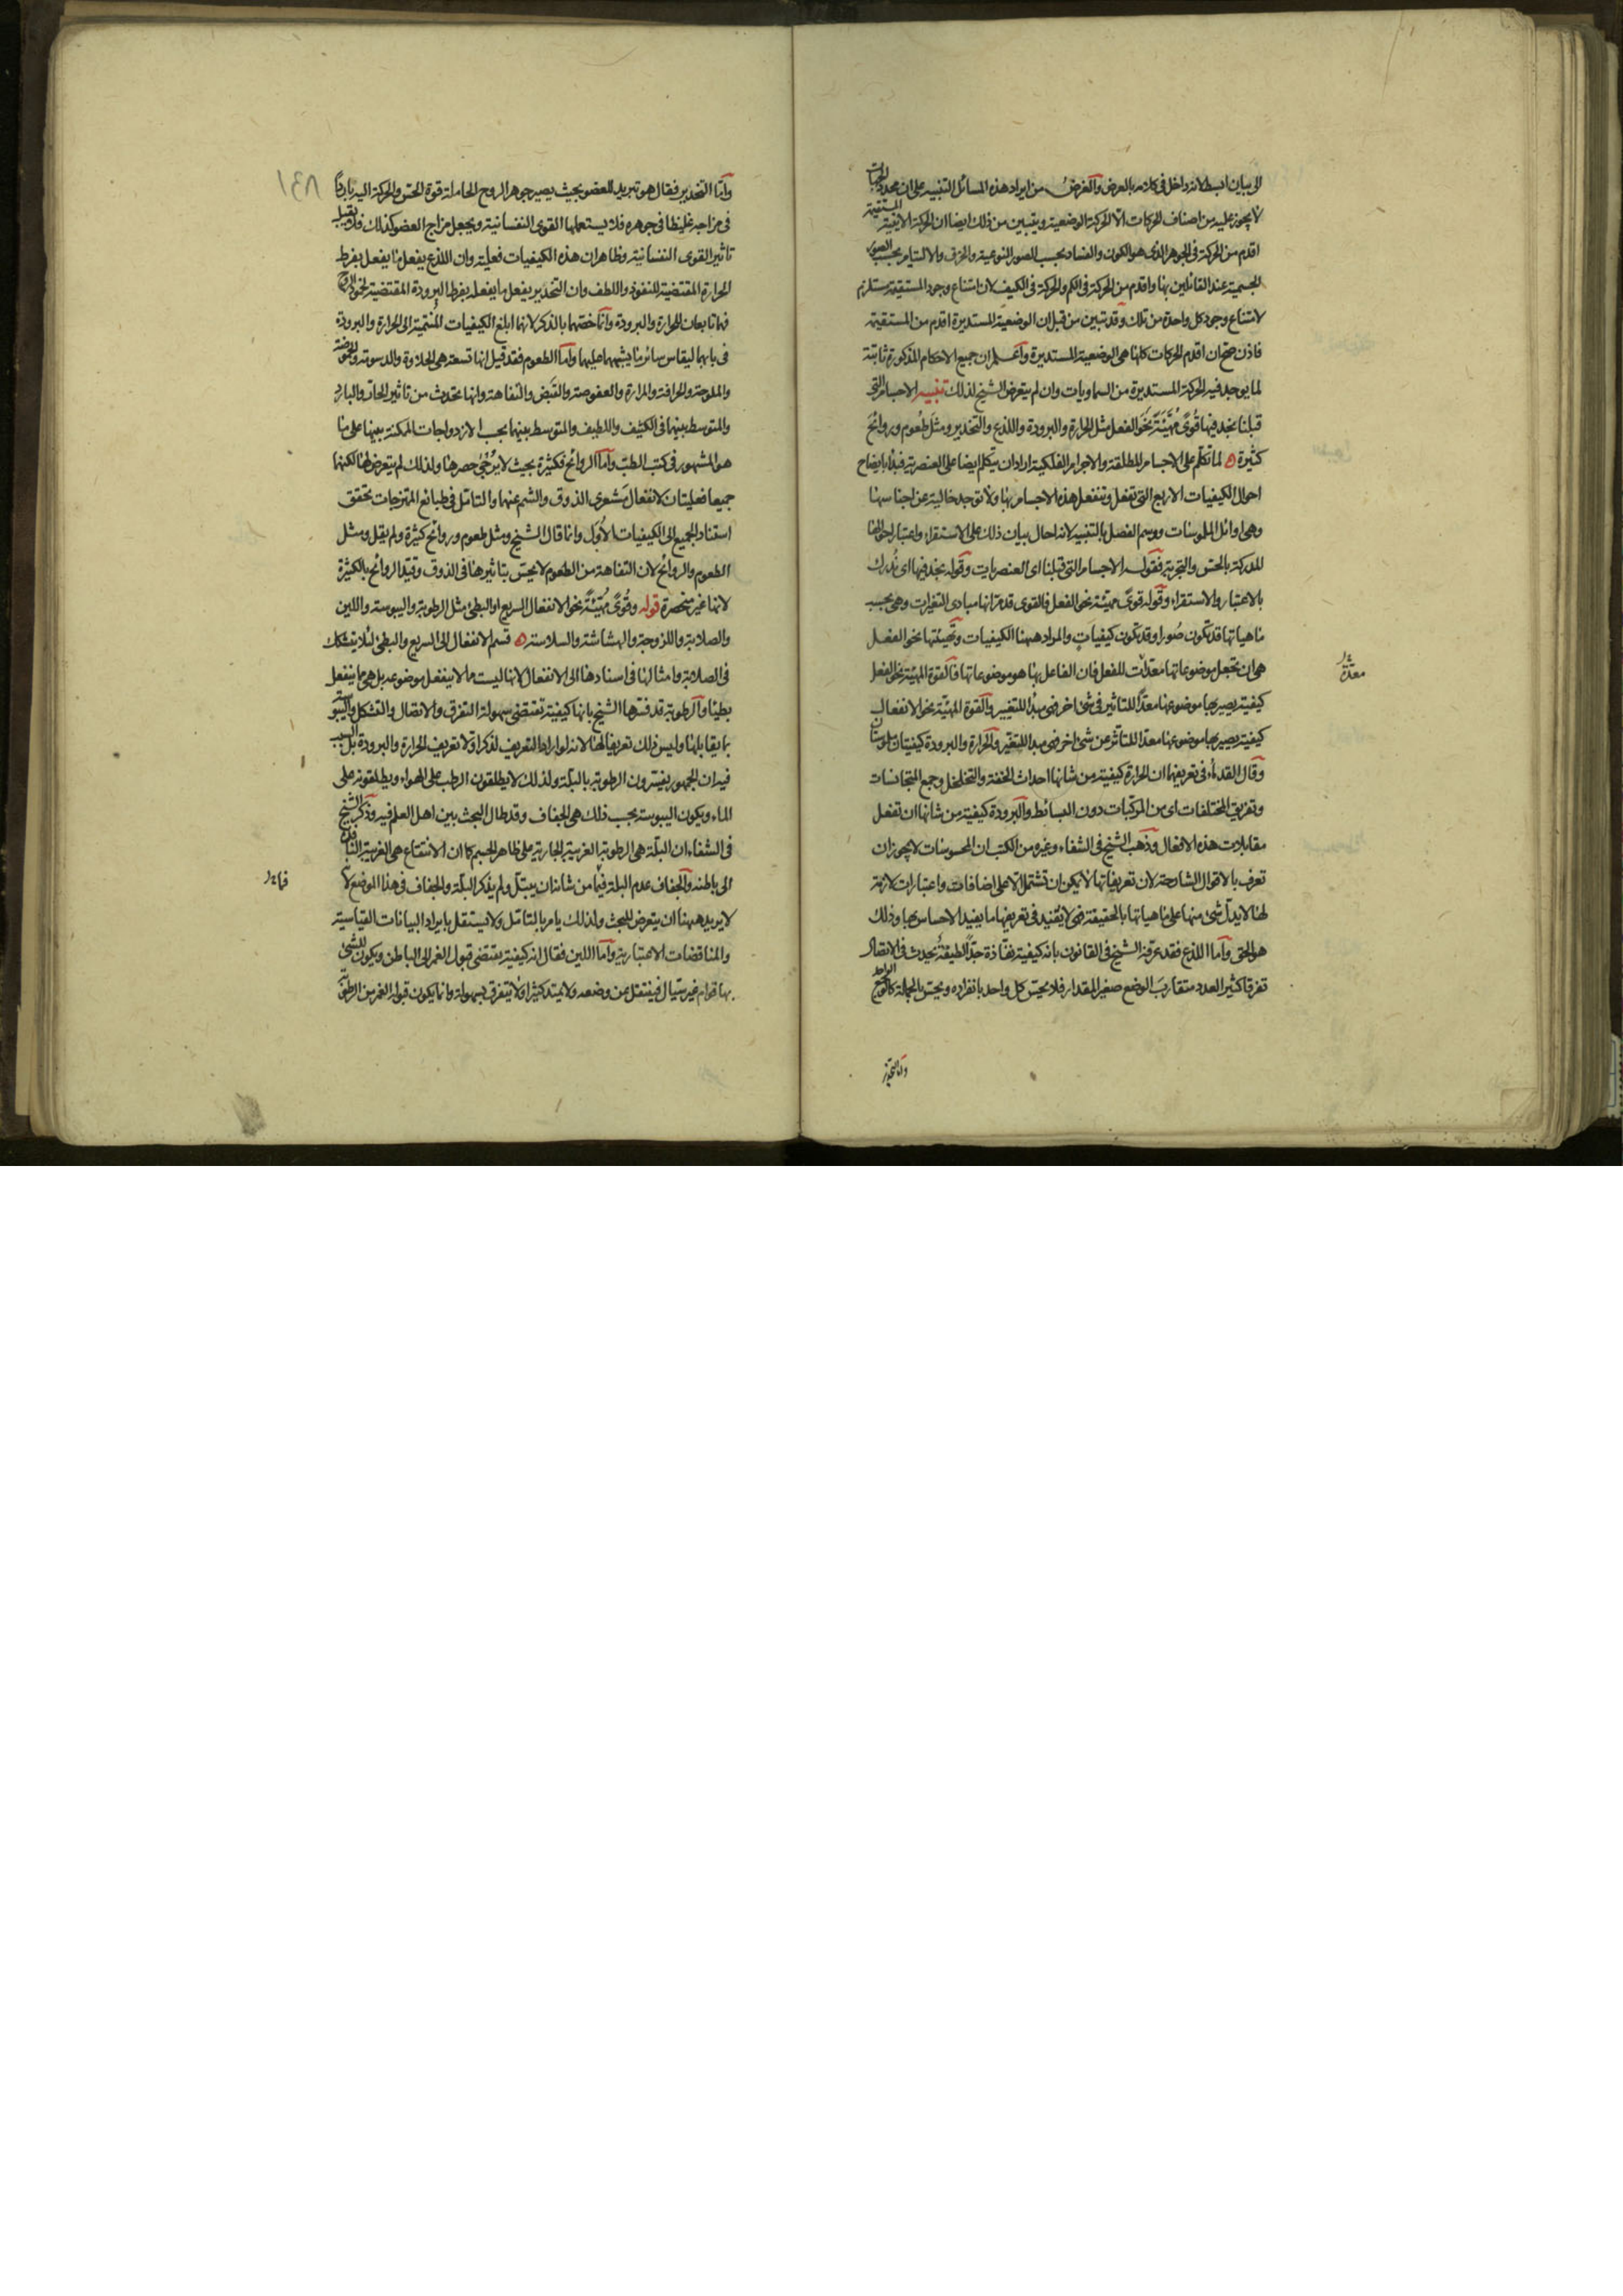 الى بيان ابسط لانه داخل فى كلامه بالعرض والغرض من ايراد هذه المسائل التنبيه على ان محدد الجهات
لا يجوز عليه من اصناف الحركات الا الحركة الوضعية ويتبين من ذلك ايضا ان الحركة الاينية المستقيمة
اقدم من الحركة فى الجوهر الذى هو الكون والفساد بحسب الصور النوعية والخرق والالتيام بحسب الصور
الجسمية عند القائلين بها واقدم من الحركة فى الكم والحركة فى الكيف لان امتناع وجود المستقيمة يستلزم
لامتناع وجود كل واحدة من تلك وقد تبين من قبل ان الوضعية المستديرة اقدم من المستقيمة
فاذن صح ان اقدم الحركات كلها هى الوضعية المستديرة واعلم ان جميع الاحكام المذكورة ثابتة
لما يوجد فيه الحركة المستديرة من السماويات وان لم يتعرض الشيخ لذلك تنبيه الاجسام التى
قبلنا نجد فيها قوى مهيئة نحو الفعل مثل الحرارة والبرودة واللذع والتخدير ومثل طعوم وروائح
كثيرة ه لما تكلم على الاجسام المطلقة والاجرام الفلكية اراد ان يتكلم ايضا على العنصرية فبدأ بايضاح
احوال الكيفيات الاربع التى تفعل وتنفعل هذه الاجسام بها ولا توجد خالية عن اجناسها
وهى اوائل الملموسات ووسم الفصل بالتنبيه لانه احال بيان ذلك على الاستقراء واعتبار احوالها
المدركة بالحس والتجربة فقوله الاجسام التى قبلنا اى العنصريات وقوله نجد فيها اى ندرك
بالاعتبار والاستقراء وقوله قوى مهيئة نحو الفعل فالقوى قد مر انها مبادى التغيرات وهى بحسب
ماهياتها قد تكون صورا وقد تكون كيفيات والمراد ههنا الكيفيات وتهيئتها نحو الفعل
هى ان تجعل موضوعاتها معدات للفعل فان الفاعل بها هو موضوعاتها فالقوة المهيئة نحو الفعل
كيفية يصير بها موضوعها معدا للتاثير فى شئ اخر فهى مبدأ للتغيير والقوة المهيئة نحو الانفعال
كيفية يصير بها موضوعها معدا للتاثر عن شئ اخر فهى مبدا للتغير والحرارة والبرودة كيفيتان ملموستان
وقال القدماء فى تعريفها ان الحرارة كيفية من شانها احداث الخفة والتخلخل وجمع المتجانسات
وتفريق المختلفات اى من المركبات دون البسائط والبرودة كيفية من شانها ان تفعل
مقابلات هذه الافعال وذهب الشيخ فى الشفاء وغيره من الكتب ان المحسوسات لا يجوز ان
تعرف بالاقوال الشارحة لان تعريفاتها لا يمكن ان تشتمل الا على اضافات واعتبارات لازمة
لها لا يدل شئ منها على ماهياتها بالحقيقة فهى لا يفيد فى تعريفها ما يفيد الاحساس بها وذلك
هو الحق واما اللذع فقد عرفه الشيخ فى القانون بانه كيفية نفاذة جدا لطيفة تحدث فى الاتصال
تفرقا كثير العدد متقارب الوضع صغير المقدار فلا يحس كل واحد بانفراده ويحس بالجملة كالوجع الواحد
معدة
واما التخدير
١٤٨
واما التخدير فقال هو تبريد للعضو بحيث يصير جوهر الروح الحاملة قوة الحس والحركة اليه باردا
فى مزاجه غليظا فى جوهره فلا يستعملها القوى النفسانية ويجعل مزاج العضو كذلك فلا يقبل
تاثير القوى النفسانية وظاهر ان هذه الكيفيات فعلية وان اللذع يفعل ما يفعل بفرط
الحرارة المقتضية للنفوذ واللطف وان التخدير يفعل ما يفعله بفرط البرودة المقتضية لجمود الروح
فهما تابعان للحرارة والبرودة وانما خصهما بالذكر لانهما ابلغ الكيفيات المنتمية الى الحرارة والبرودة
فى بابهما ليقاس سائر ما يشبههما عليهما واما الطعوم فقد قيل انها تسعة هى الحلاوة والدسومة والحموضة
والملوحة والحرافة والمرارة والعفوصة والقبض والتفاهة وانها تحدث من تاثير الحار والبارد
والمتوسط بينهما فى الكثيف واللطيف والمتوسط بينهما بحسب الازدواجات الممكنة بينها على ما
هو المشهور فى كتب الطب واما الروائح فكثيرة بحيث لا يرجى حصرها ولذلك لم يتعرض لها لكنهما
جميعا فعليتان لانفعال مشعرى الذوق والشم عنهما والتامل فى طبائع الممتزجات يحقق
استناد الجميع الى الكيفيات الاول وانما قال الشيخ ومثل طعوم وروائح كثيرة ولم يقل ومثل
الطعوم والروائح لان التفاهة من الطعوم لا يحس بتاثيرها فى الذوق وقيد الروائح بالكثيرة
لانها غير منحصرة قوله وقوى مهيئة نحو الانفعال السريع او البطئ مثل الرطوبة واليبوسة واللين
والصلابة واللزوجة والهشاشة والسلاسة ه قسم الانفعال الى السريع والبطئ لئلا يتشكك
فى الصلابة وامثالها فى اسنادها الى الانفعال لانها ليست مما لا ينفعل موضوعه بل هى مما ينفعل
بطيئا والرطوبة قد فسرها الشيخ بانها كيفية تقتضى سهولة التفرق والاتصال والتشكل واليبوسة
بما يقابلها وليس ذلك تعريفا لها لانه لو اراد التعريف لذكر اولا تعريف الحرارة والبرودة بل السبب
فيه ان الجمهور يفسرون الرطوبة بالبلة ولذلك لا يطلقون الرطب على الهواء ويطلقونه على
الماء ويكون اليبوسة بحسب ذلك هى الجفاف وقد طال البحث بين اهل العلم فيه وذكر الشيخ
فى الشفاء ان البلة هى الرطوبة الغريبة الجارية على ظاهر الجسم كما ان الانتقاع هى الغريبة النافذة
الى باطنه والجفاف عدم البلة فيما من شانه ان يبتل ولم يذكر البلة والجفاف فى هذا الموضع لانه
لا يريد ههنا ان يتعرض للبحث ولذلك يامر بالتامل ولا يستقل بايراد البيانات القياسية
والمناقضات الاعتبارية واما اللين فقال انه كيفية تقتضى قبول الغمز الى الباطن ويكون للشئ
بها قوام غير سيال فينتقل عن وضعه ولا يمتد كثيرا ولا يتفرق بسهولة وانما يكون قبوله الغمز من الرطوبة